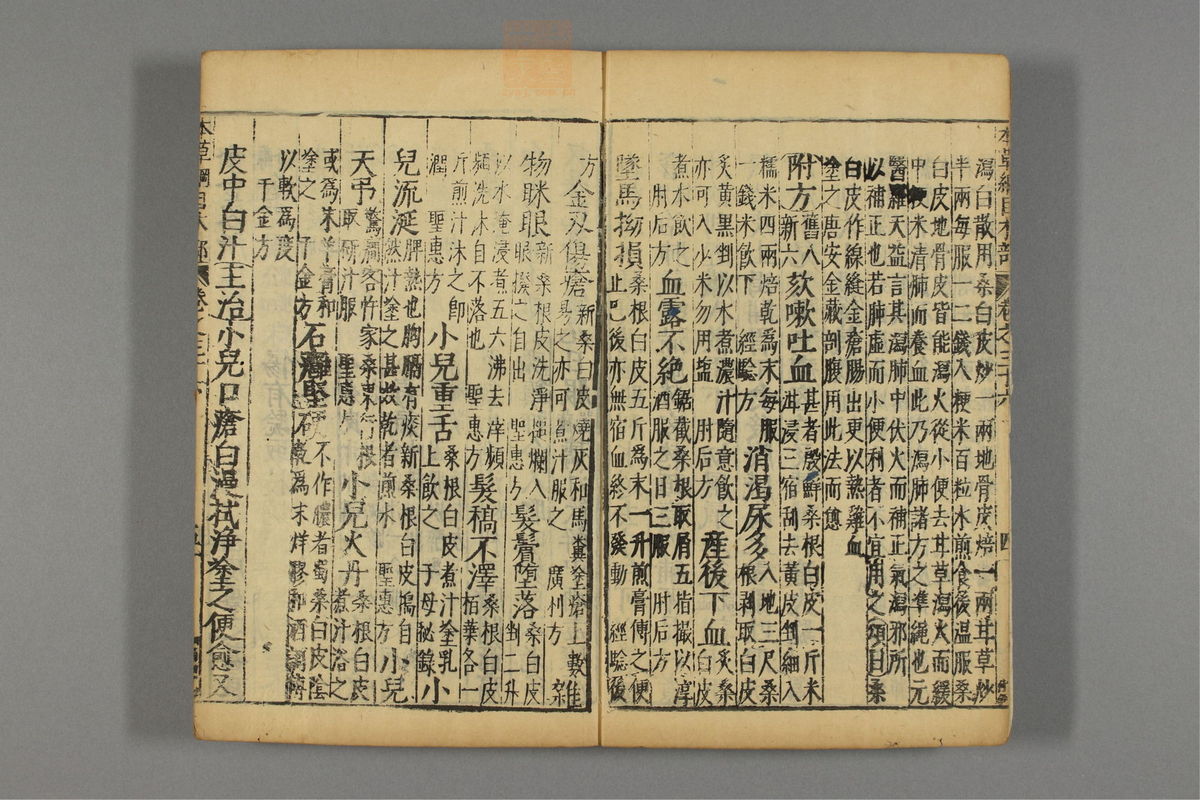 本草綱目木部 卷之三十六 四
瀉白散用桑白皮炒一兩地骨皮焙一兩甘草炒
半兩每服一二錢入粳米百粒水煎食後溫服桑
白皮地骨皮皆能瀉火從小便去甘草瀉火而緩
中粳米清肺而養血此乃瀉肺諸方之準繩也元
醫羅天益言其瀉肺中伏火而補正氣瀉邪所
以補正也若肺虛而小便利者不宜用之頌曰桑
白皮作線縫金瘡腸出更以熱雞血
塗之唐安金藏剖腹用此法而愈
附方舊八新六欬嗽吐血甚者殷鮮桑根白皮一斤米泔浸三宿刮去黃皮剉細入
糯米四兩焙乾爲末每服一錢米飲下 經驗方 消渴尿多入地三尺桑根剥取白皮
炙黃黑剉以水煮濃汁隨意飲之亦可入少米勿用鹽 肘后方 產後下血炙白皮
煮水飲之 肘后方 血露不絕鋸截桑根取屑五指撮以淳酒服之日三服 肘后方
墜馬拗損桑根白皮五斤爲末一升煎膏傅之便止已後亦無宿血終不發動 經驗後
方 金刃傷瘡新桑白皮燒灰和馬糞塗瘡上數易之亦可煮汁服之 廣州方 雜
物眯眼新桑根皮洗淨搥爛入眼撥之自出 聖惠方 髮鬢墮落桑白皮剉二升
以水淹浸煮五六沸去滓頻頻洗沐自不落也 聖惠方 髮稿不澤桑根白皮柏葉各一
斤煎汁沐之即潤 聖惠方 小兒重舌桑根白皮煮汁塗乳上飲之 子母秘錄 小
兒流涎脾熱也胸膈有痰新桑根白皮搗自然汁塗之甚效乾者煎水 聖惠方 小兒
天弔驚癇客忤家桑東行根取研汁服 聖惠方 小兒火丹桑根白皮煮汁浴之
或爲末羊膏和塗之 千金方 石癰堅硬不作膿者蜀桑白皮陰乾爲末烊膠和酒調傅
以軟爲度 千金方
皮中白汁主治小兒口瘡白漫拭淨塗之便愈又
本草綱目木部 卷之三十六